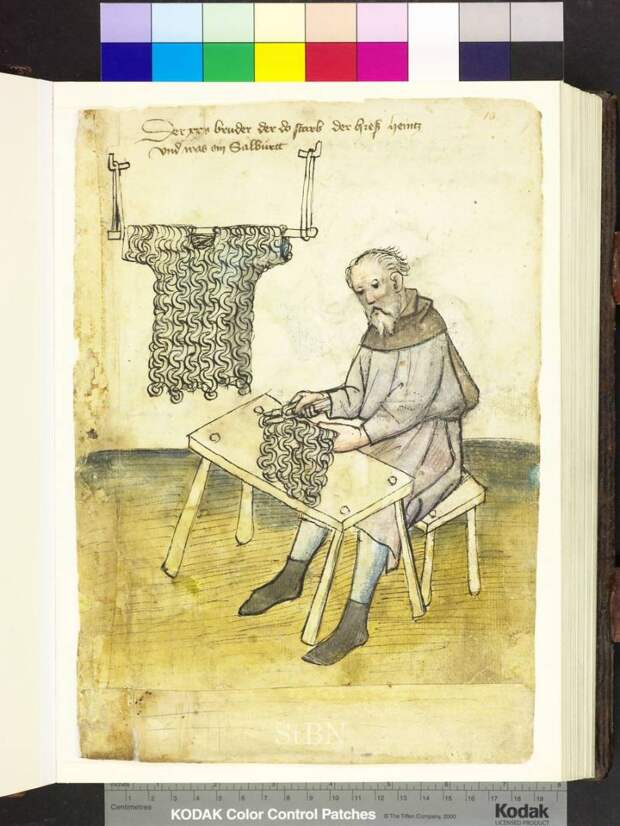 Der xxv bruder der do starb der hieß heintz
vnd was ein Salburtt
10
StBN
Inches
Centimetres
1 2 3 4 5 6 7 8 9 10 11 12 13 14 15 16 17 18 19
KODAK Color Control Patches © The Tiffen Company, 2000 Kodak
LICENSED PRODUCT